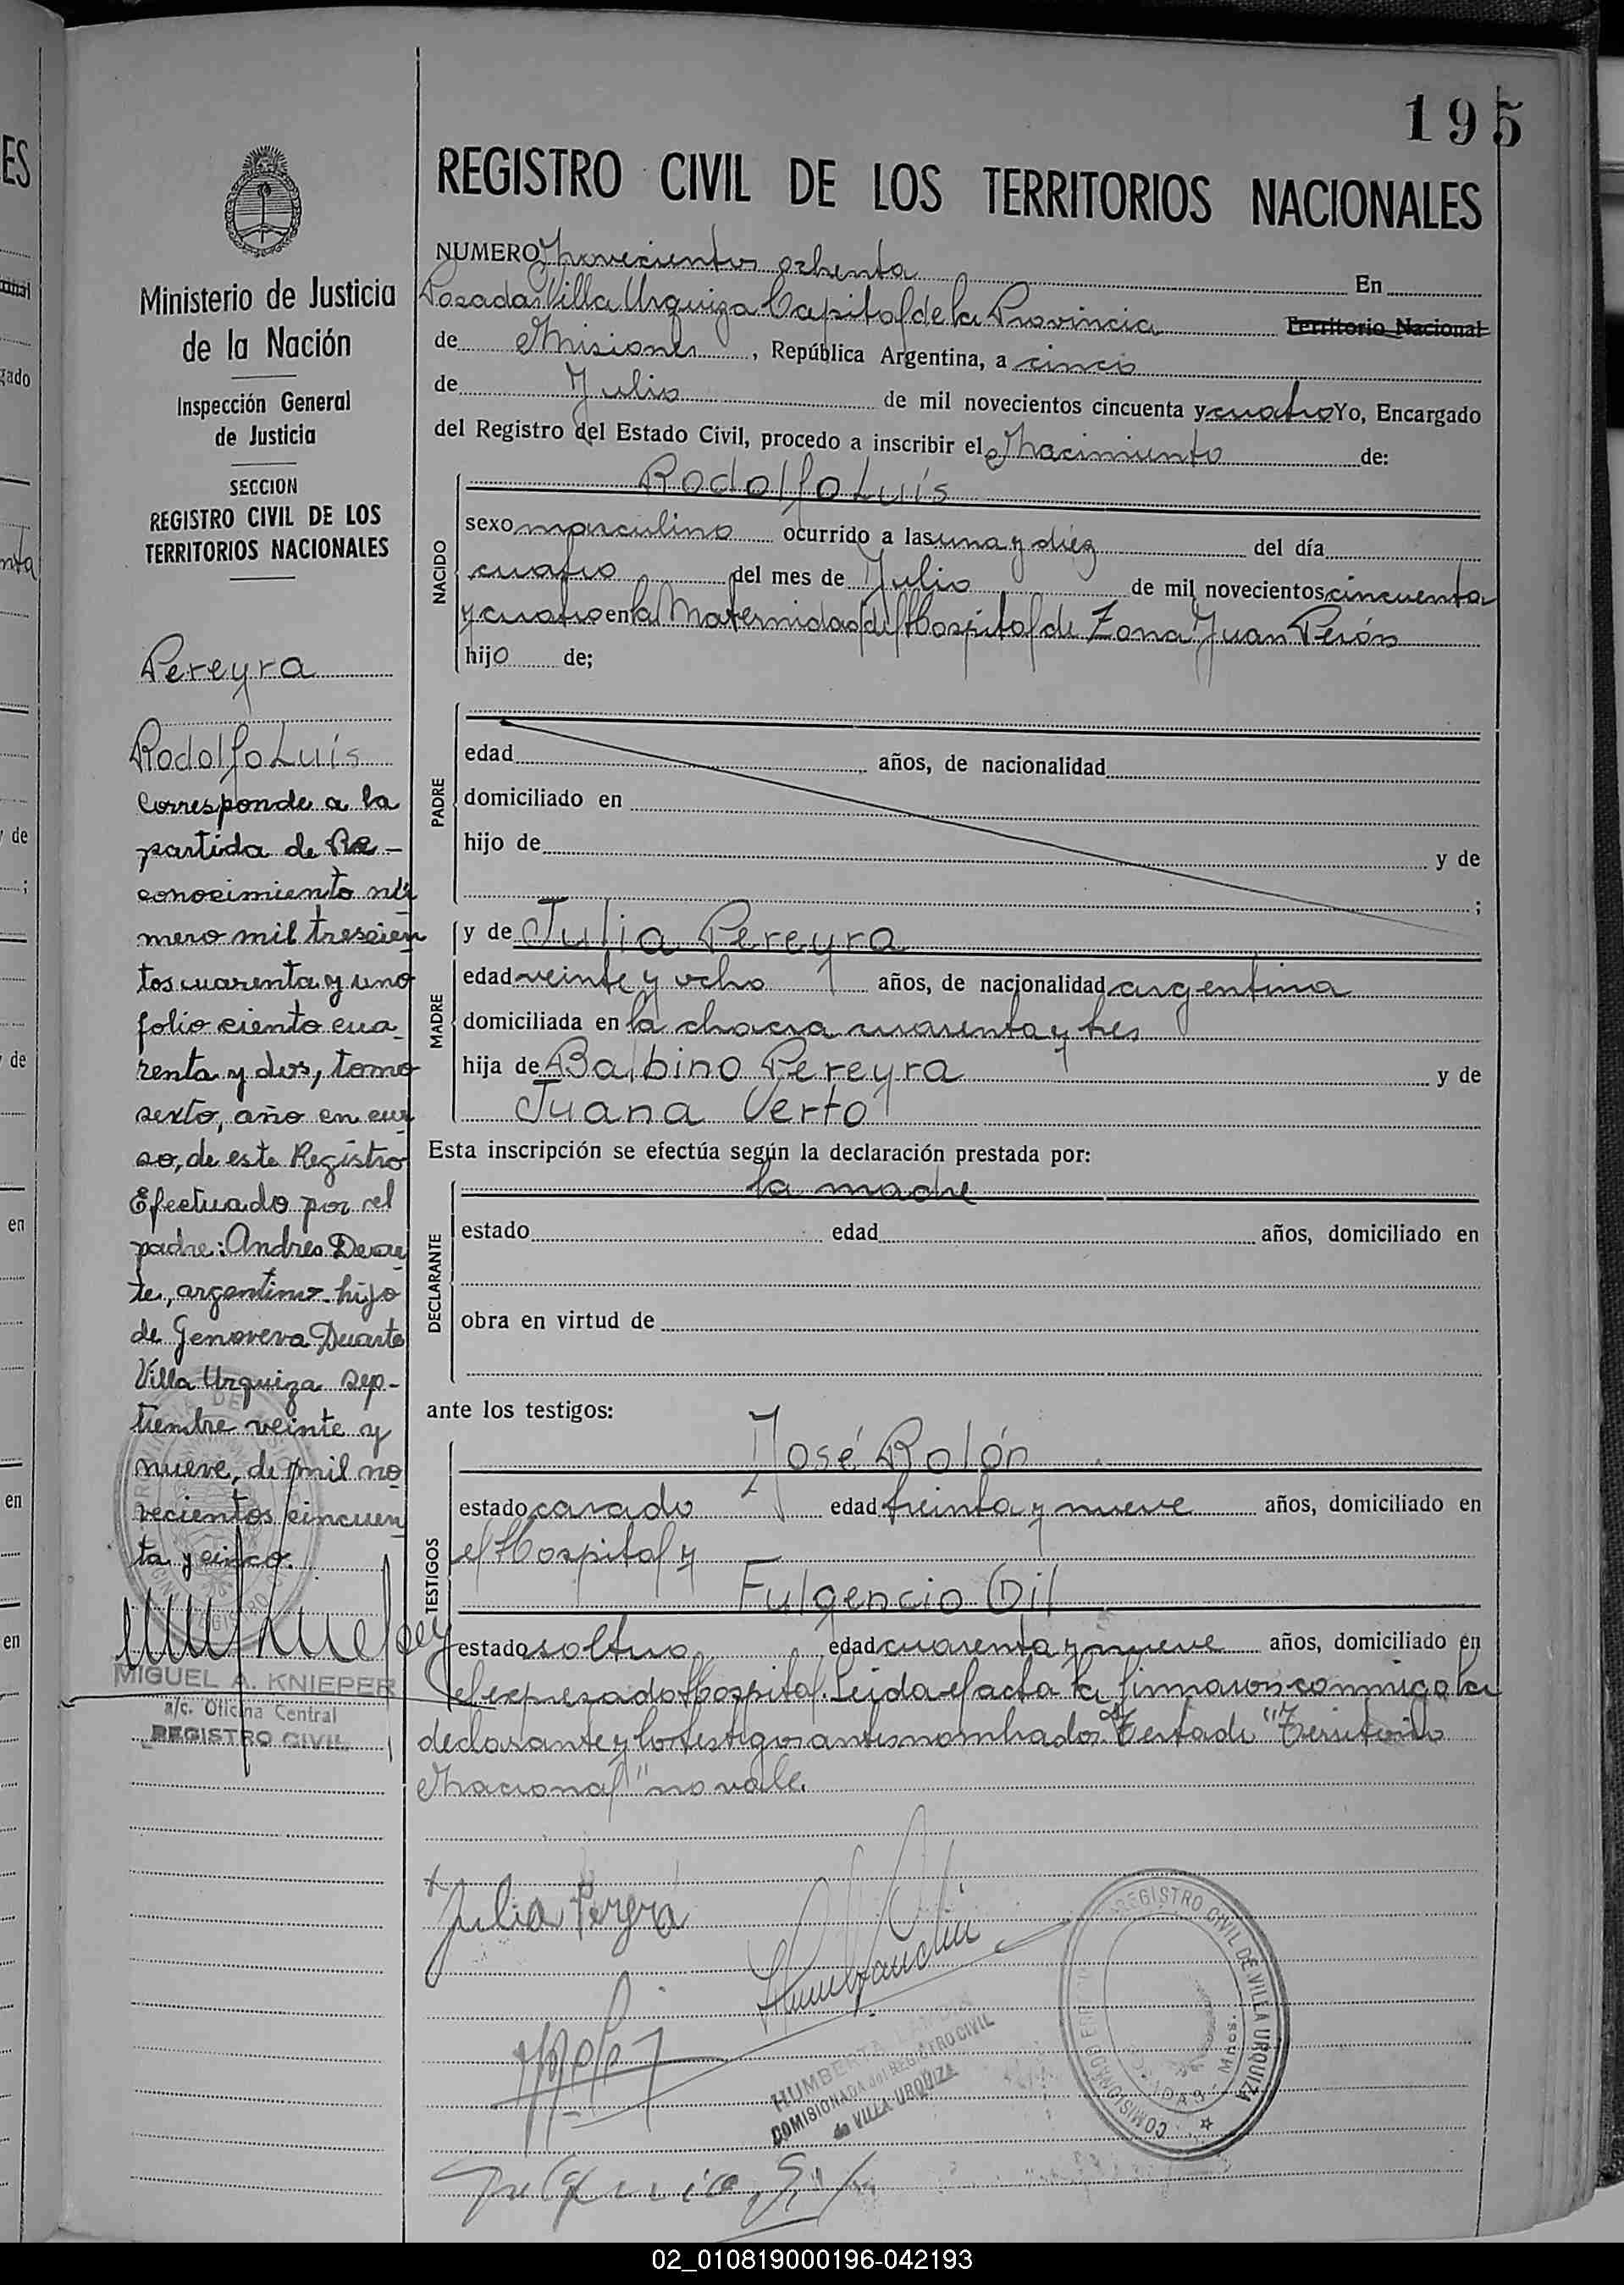 195
REGISTRO CIVIL DE LOS TERRITORIOS NACIONALES
NUMERO Novecientos ochenta En
Posadas Villa Urquiza Capital de la Provincia Territorio Nacional
de Misiones, República Argentina, a cinco
de Julio de mil novecientos cincuenta y cuatro Yo, Encargado
del Registro del Estado Civil, procedo a inscribir el Nacimiento de:
NACIDO
Rodolfo Luis
sexo masculino ocurrido a las una y diez del día
cuatro del mes de Julio de mil novecientos cincuenta
y cuatro en la Maternidad del Hospital de Zona Juan Perón
hijo de;
PADRE
edad años, de nacionalidad
domiciliado en
hijo de y de
;
MADRE
y de Julia Pereyra
edad veinte y ocho años, de nacionalidad argentina
domiciliada en la chacra cuarenta y tres
hija de Balbino Pereyra y de
Juana Verto
Esta inscripción se efectúa según la declaración prestada por:
DECLARANTE
la madre
estado edad años, domiciliado en
obra en virtud de
ante los testigos:
TESTIGOS
José Rolón
estado casado edad treinta y nueve años, domiciliado en
el Hospital y
Fulgencio Gil
estado soltero edad cuarenta y nueve años, domiciliado en
el expresado Hospital. Leida el acta la firmaron conmigo la
declarante y los testigos antes nombrados. Testado "Territorio
Nacional" no vale.
Julia Pereyra
HUMBERTA
COMISIONADA del REGISTRO CIVIL
de VILLA URQUIZA
REGISTRO CIVIL DE VILLA URQUIZA
Mnes.
Fulgencio Gil
Ministerio de Justicia
de la Nación
Inspección General
de Justicia
SECCION
REGISTRO CIVIL DE LOS
TERRITORIOS NACIONALES
Pereyra
Rodolfo Luis
Corresponde a la
partida de Re-
conocimiento nú
mero mil trescien
tos cuarenta y uno
folio ciento cua
renta y dos, tomo
sexto, año en cur
so, de este Registro
Efectuado por el
padre: Andres Duar
te, argentino - hijo
de Genoveva Duarte
Villa Urquiza sep-
tiembre veinte y
nueve, de mil no
vecientos cincuen
ta y cinco.
MIGUEL A. KNIEPER
a/c. Oficina Central
REGISTRO CIVIL
ES
02_010819000196-042193